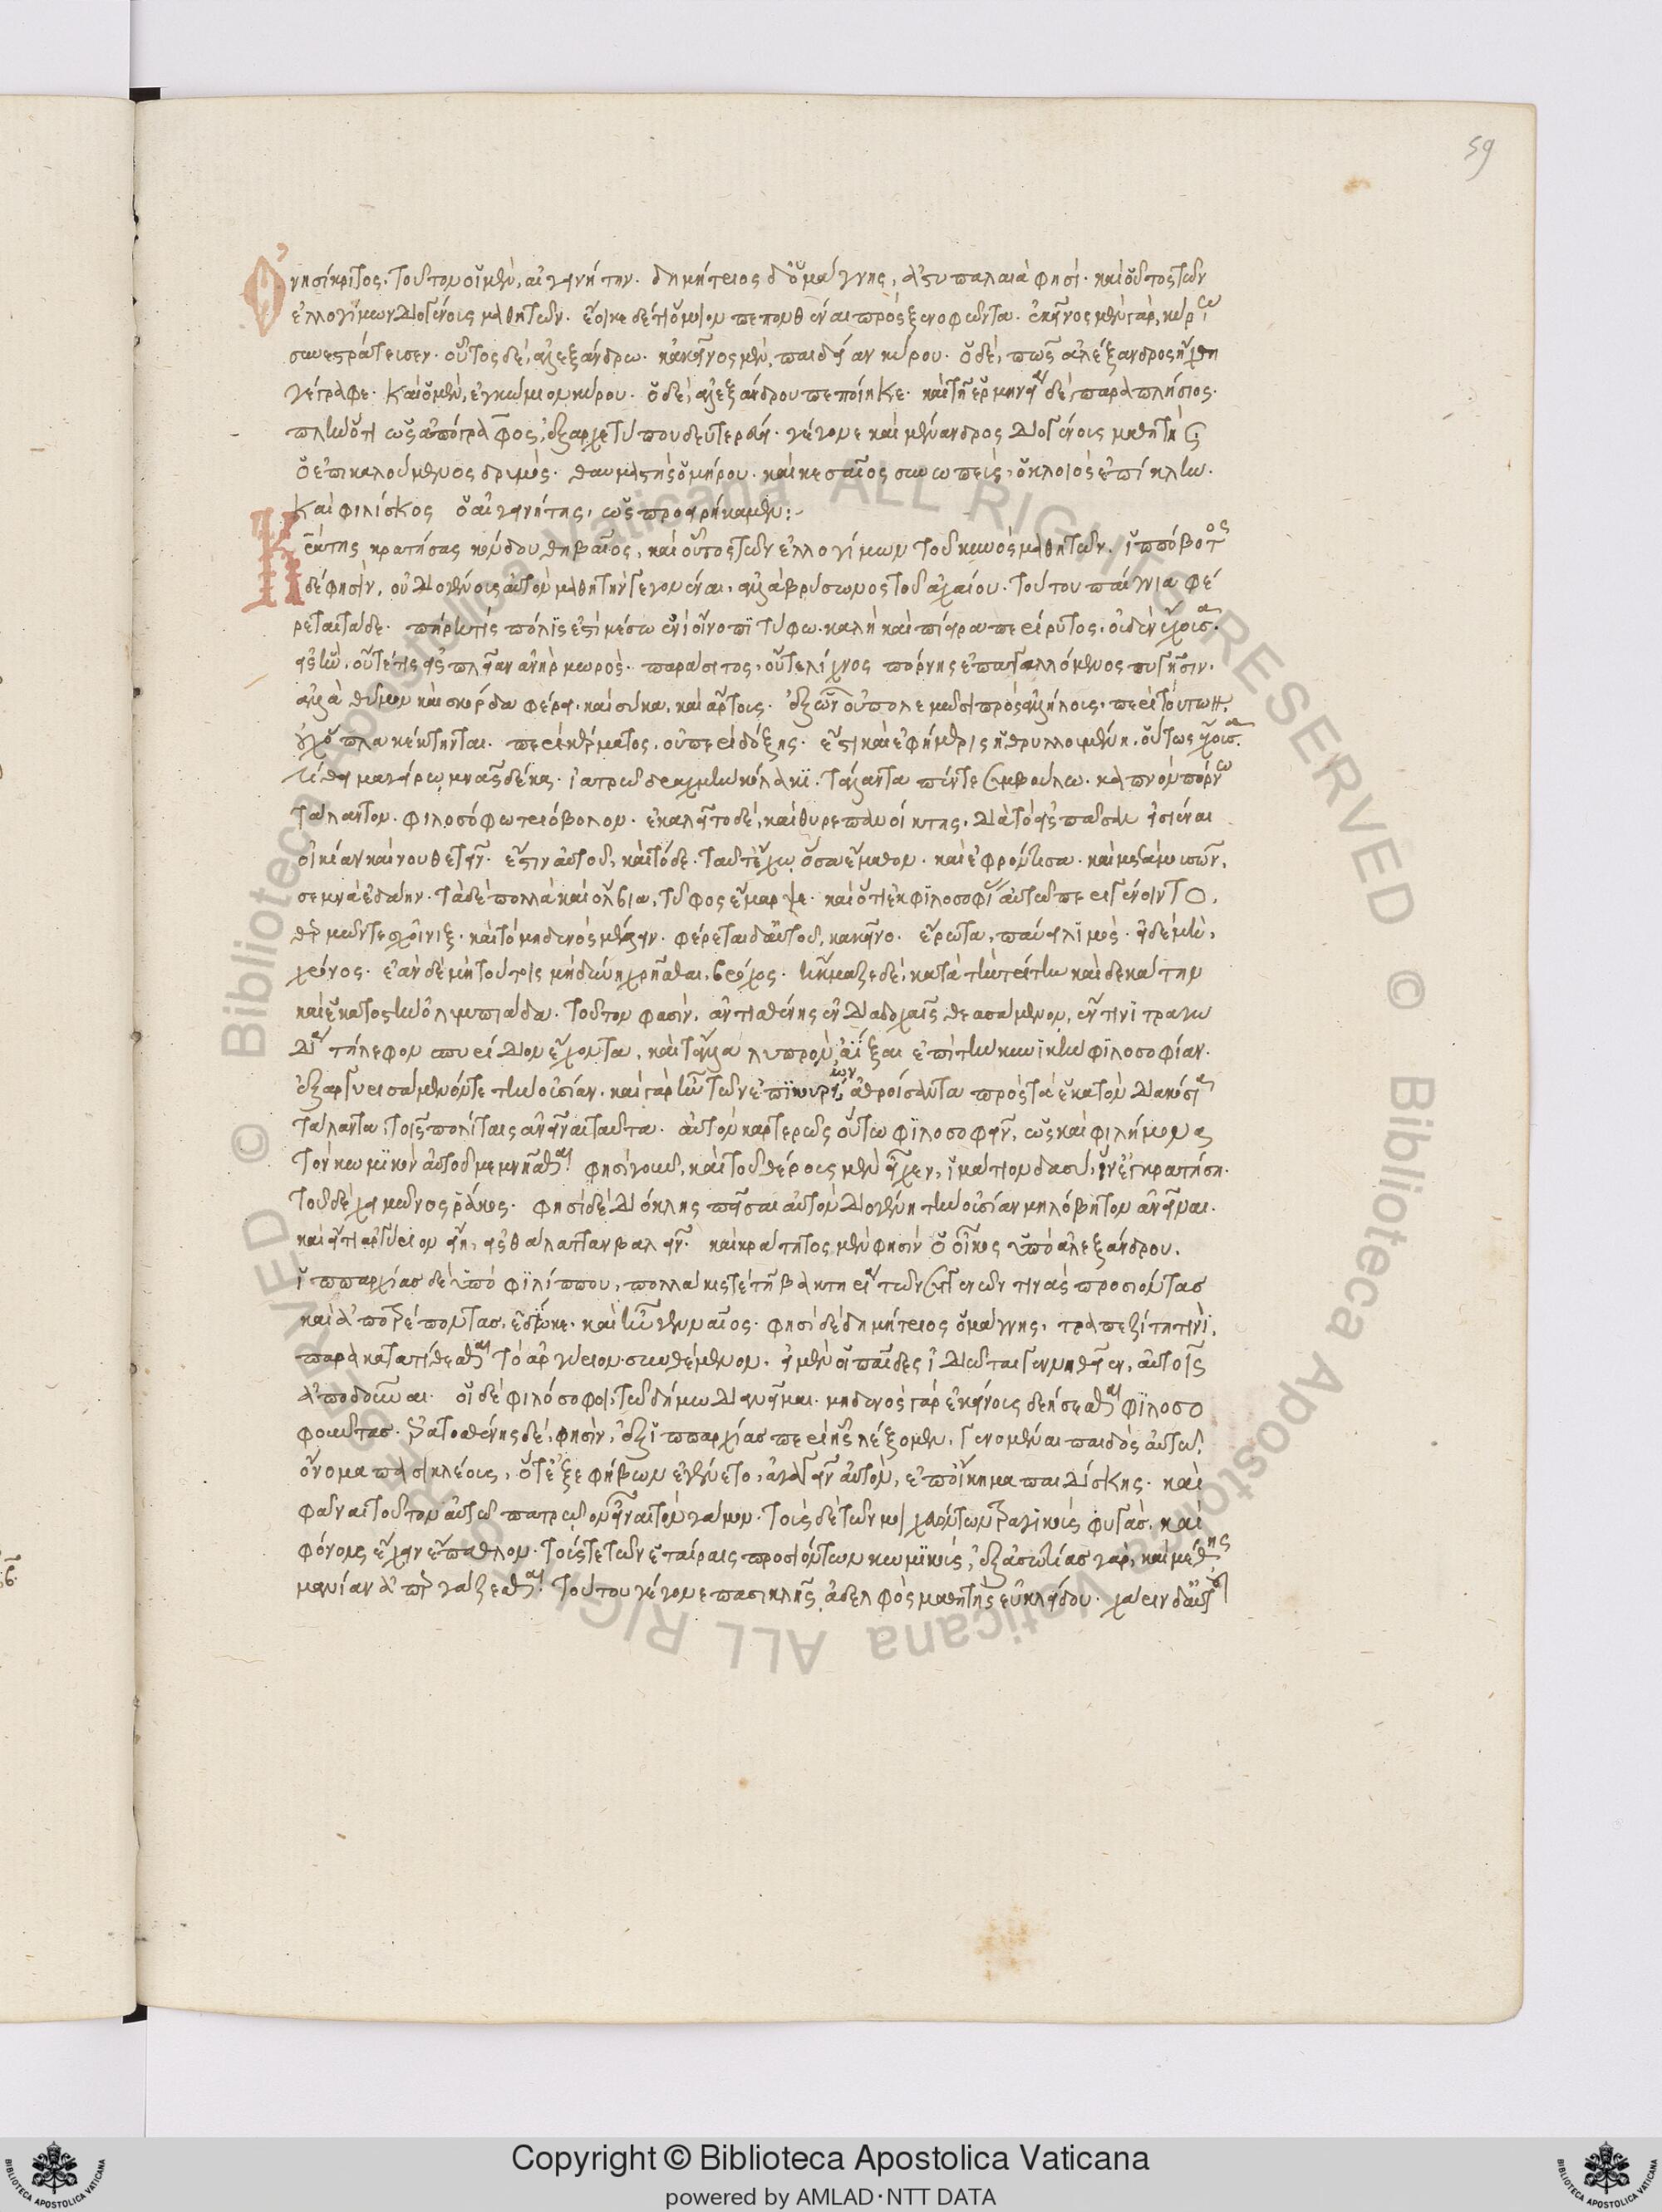 59
Ὀνησίκριτος. τοῦτον οἱ μὲν, αἰγινήτην. δημήτριος δ' ὁ μάγνης, ἀστυπαλαιά φησι. καὶ οὗτος τῶν
ἐλλογίμων διογένους μαθητῶν. ἔοικε δέ τι ὅμοιον πεπονθέναι πρὸς ξενοφῶντα. ἐκεῖνος μὲν γὰρ, κύρω
συνεστράτευσεν. οὗτος δέ, ἀλεξάνδρω. κἀκεῖνος μὲν, παιδείαν κύρου. ὁ δέ, πῶς ἀλέξανδρος ἤχθη
γέγραφε. καὶ ὁ μὲν, ἐγκώμιον κύρου. ὁ δέ, ἀλεξάνδρου πεποίηκε. καὶ τῆ ἑρμηνεία δέ, παραπλήσιος.
πλὴν ὅτι ὡς ἀπόγραφος, ἐξ ἀρχετύπου δευτερεύει. γέγονε καὶ μένανδρος διογένους μαθητὴς
ὁ ἐπικαλούμενος δρυμός. θαυμαστὴς ὁμήρου. καὶ ηγησαῖος σινωπεύς, ὁ κλοιὸς ἐπίκλην.
καὶ φιλίσκος ὁ αἰγινήτης, ὡς προειρήκαμεν:-
Κράτης κρατήσας κύνδου θηβαῖος, καὶ οὗτος τῶν ἐλλογίμων τοῦ κυνὸς μαθητῶν. ἱππόβοτος
δέ φησὶν, οὐ διογένους αὐτὸν μαθητὴν γεγονέναι, ἀλλὰ βρύσωνος τοῦ ἀχαίου. τούτου παίγνια φέ
ρεται τάδε. πήρη τίς πόλις ἐστὶ μέσω ἐνὶ οἴνοπι τύφω. καλὴ καὶ πίειρα περίρυτος, οὐδὲν ἔχουσα.
εἰς ἣν, οὔτέ τις εἰσπλεῖ ἀνὴρ μωρὸς παράσιτος, οὔτε λίχνος πόρνης ἐπαγαλλόμενος πυγῆσιν.
ἀλλὰ θύμον καὶ σκόρδα φέρει. καὶ σύκα, καὶ ἄρτους. ἐξ ὧν οὐ πολεμοῦσι πρὸς ἀλλήλους, περὶ τούτων.
οὐχ ὅπλα κέκτηνται. περὶ κέρματος, οὐ περὶ δόξης. ἔστι καὶ ἐφήμερις ἡ θρυλλουμένη, οὕτως ἔχουσα.
τίθει μαγείρω μνᾶς δέκα. ἰατρῶ δραχμὴν κόλακι. τάλαντα πέντε συμβούλω. καπνὸν πόρνω
τάλαντον. φιλοσόφω τριόβολον. ἐκαλεῖτο δέ, καὶ θυρεπανοίκτης, διὰ τὸ εἰς πᾶσαν εἰσιέναι
οἰκίαν καὶ νουθετεῖν. ἔστιν αὐτοῦ, καὶ τόδε. ταῦτ' ἔχω ὅσσ' ἔμαθον. καὶ ἐφρόντισα. καὶ μετὰ μουσῶν,
σεμνὰ ἐδάην. τὰ δὲ πολλὰ καὶ ὄλβια, τῦφος ἔμαρψε. καὶ ὅτι ἐκ φιλοσοφίας αὐτῶ περιγένοιντο,
θερμῶν τε χοίνιξ. καὶ τὸ μηδενὸς μέλειν. φέρεται δ' αὐτοῦ, κἀκεῖνο. ἔρωτα, παύει λιμὸς. εἰ δὲ μὴ,
χρόνος. ἐὰν δὲ μὴ τούτοις μὴ δύνη χρῆσθαι, βρόχος. ἤκμαζε δέ, κατὰ τὴν τρίτην καὶ δεκάτην
καὶ ἑκατοστὴν ὀλυμπιάδα. τοῦτον φασὶν, ἀντισθένης ἐν διαδοχαῖς θεασάμενον, ἔν τινι τραγω
δία τήλεφον σπυρίδιον ἔχοντα, καὶ τἄλλα λυπρὸν, ἀΐξαι ἐπὶ τὴν κυνικὴν φιλοσοφίαν.
ἐξαργυρισάμενόν τε τὴν οὐσίαν. καὶ γὰρ ἦν τῶν ἐπικυριων ἀθροίσαντα πρὸς τὰ ἑκατὸν διακόσια
τάλαντα, τοῖς πολίταις ἀνεῖναι ταῦτα. αὐτὸν καρτερῶς οὕτω φιλοσοφεῖν, ὡς καὶ φιλήμονα
τὸν κωμικὸν αὐτοῦ μεμνῆσθαι. φησὶ γοῦν, καὶ τοῦ θέρους μὲν εἶχεν, ἱμάτιον δασὺ, ἵν' ἐγκρατὴς ἦ.
τοῦ δὲ χειμῶνος ῥάκος. φησὶ δὲ διόκλης πεῖσαι αὐτὸν διογένη τὴν οὐσίαν μηλόβοτον ἀνεῖναι.
καὶ εἴ τι ἀργύριον εἴη, εἰς θάλατταν βαλεῖν. καὶ κράτητος μὲν φησὶν ὁ οἶκος ὑπὸ ἀλεξάνδρου.
ἱππαρχίας δὲ ὑπὸ φιλίππου, πολλάκις τε τῆ βακτηρία τῶν συγγενῶν τινὰς προσιόντας
καὶ ἀποτρέποντας, ἐδίωκε. καὶ ἦν γενναῖος. φησὶ δὲ δημήτριος ὁ μάγνης, τραπεζίτη τινὶ,
παρακατατίθεσθαι τὸ ἀργύριον συνθέμενον. εἰ μὲν οἱ παῖδες ἰδιῶται γενηθεῖεν, αὐτοῖς
ἀποδοῦναι. οἱ δὲ φιλόσοφοι, τῶ δήμω διανεῖμαι. μηδενὸς γὰρ ἐκείνους δεήσεσθαι φιλοσο
φοῦντας. ἐρατοσθένης δέ, φησὶν, ἐξ ἱππαρχίας περὶ ἧς λέξομεν, γενομένου παιδὸς αὐτῶ,
ὄνομα πασικλέους, ὅτ' ἐξ ἐφήβων ἐγένετο, ἀγαγεῖν αὐτὸν, ἐπ' οἴκημα παιδίσκης. καὶ
φάναι τοῦτον αὐτῶ πατρῶον εἶναι τὸν γάμον. τοὺς δὲ τῶν μοιχευόντων τραγικοὺς φυγὰς, καὶ
φόνους ἔχειν ἔπαθλον. τούς τε τῶν ἑταίραις προσιόντων κωμικούς, ἐξ ἀσωτίας γὰρ, καὶ μέθης
μανίαν ἀπεργάζεσθαι. τούτου γέγονε πασικλῆς ἀδελφὸς μαθητὴς εὐκλείδου. χάριεν δ' αὐτοῦ
Copyright © Biblioteca Apostolica Vaticana
powered by AMLAD·NTT DATA